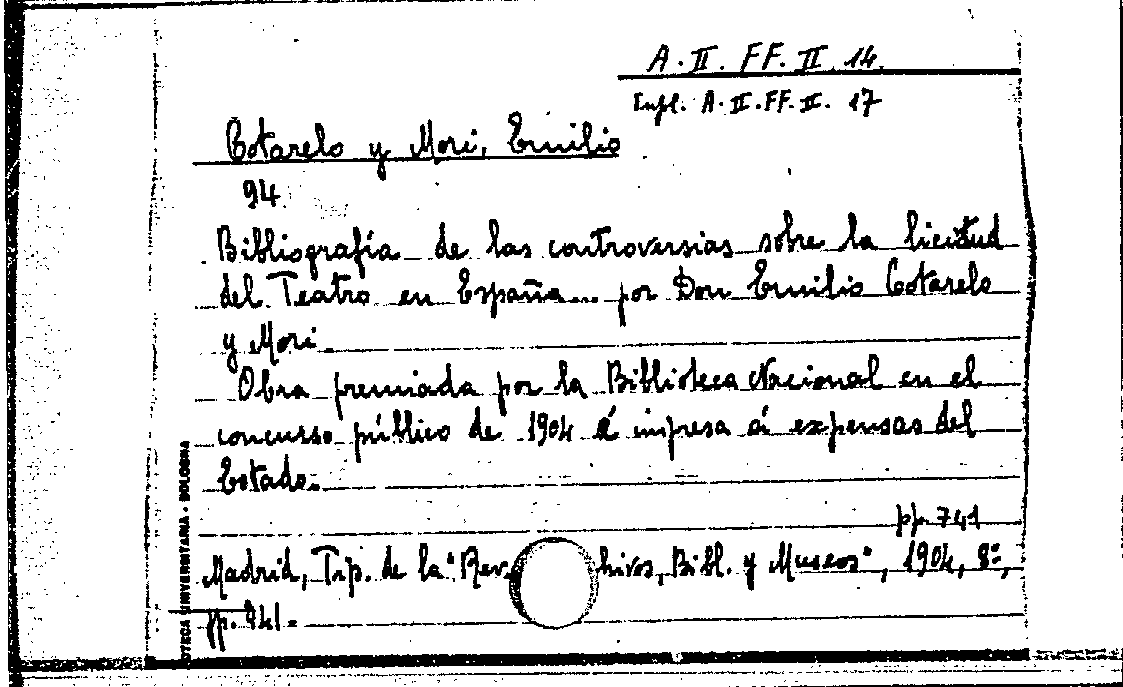 A.II. FF. II 14.
Supl. A.II.FF.II. 17
Cotarelo y Mori, Emilio
94.
Bibliografía de las controversias sobre la licitud
del Teatro en España... por Don Emilio Cotarelo
y Mori.
Obra premiada por la Biblioteca Nacional en el
concurso público de 1904 é impresa á expensas del
Estado.
pp. 741
Madrid, Tip. de la "Rev. hivos, Bibl. y Museos", 1904, 8º,
pp. 741.
OTECA UNIVERSITARIA - BOLOGNA